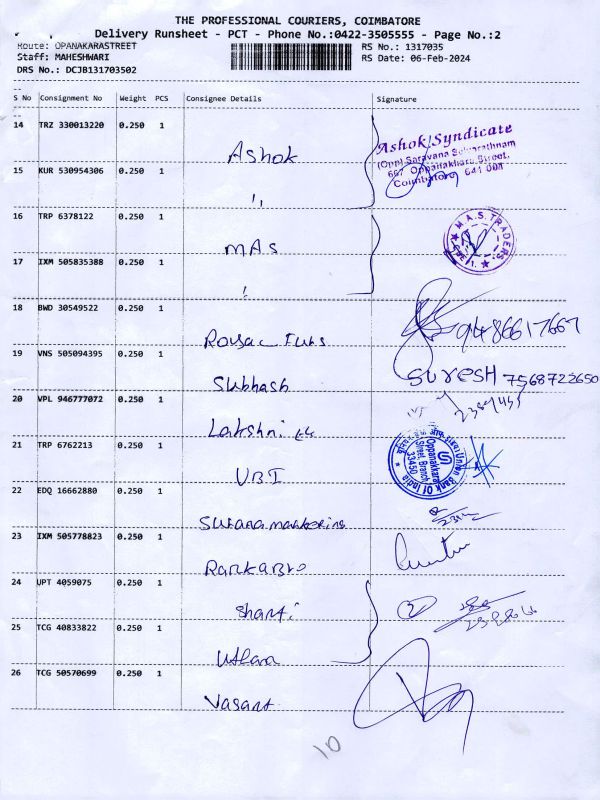 THE PROFESSIONAL COURIERS, COIMBATORE
Delivery Runsheet - PCT - Phone No.:0422-3505555 - Page No.:2
Route: OPANAKARASTREET RS No.: 1317035
Staff: MAHESHWARI RS Date: 06-Feb-2024
DRS No.: DCJB131703502
S No Consignment No Weight PCS Consignee Details Signature
14 TRZ 330013220 0.250 1 Ashok
Ashok Syndicate
(Opp) Saravana Selvarathnam
667 Oppanakkara Street,
Coimbatore 641 001
15 KUR 530954306 0.250 1 "
16 TRP 6378122 0.250 1 MAS
M.A.S. TRADERS
17 IXM 505835388 0.250 1 "
18 BWD 30549522 0.250 1 9486617667
19 VNS 505094395 0.250 1 Subhash SURESH 7568722650
20 VPL 946777072 0.250 1 Lakshmi
21 TRP 6762213 0.250 1 UBI
Union Bank Of India
Oppanakkara
Street, Branch
33450
22 EDQ 16662880 0.250 1
23 IXM 505778823 0.250 1
24 UPT 4059075 0.250 1 Shanti 2
25 TCG 40833822 0.250 1
26 TCG 50570699 0.250 1 Vasant
10